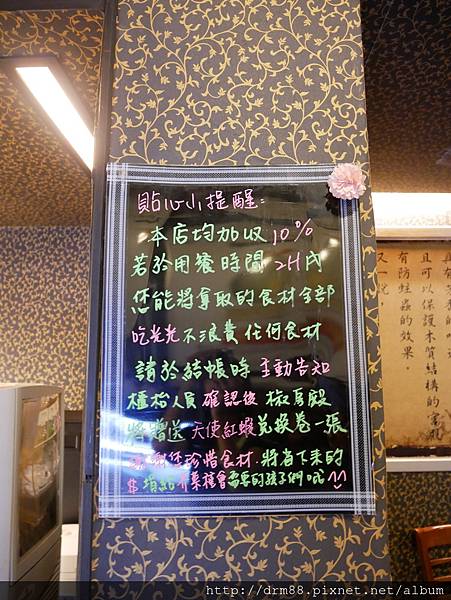 貼心小提醒:
本店均加收10%
若於用餐時間2H內
您能將拿取的食材全部
吃光光不浪費任何食材
請於結帳時主動告知
櫃枱人員確認後 椒房殿
將贈送天使紅蝦兌換卷一張
謝謝您珍惜食材.將省下來的
$捐給 需要的孩子們
且可以保護木質結構的
有防蛀蟲的效果。
又一說
http://drm88.pixnet.net/album